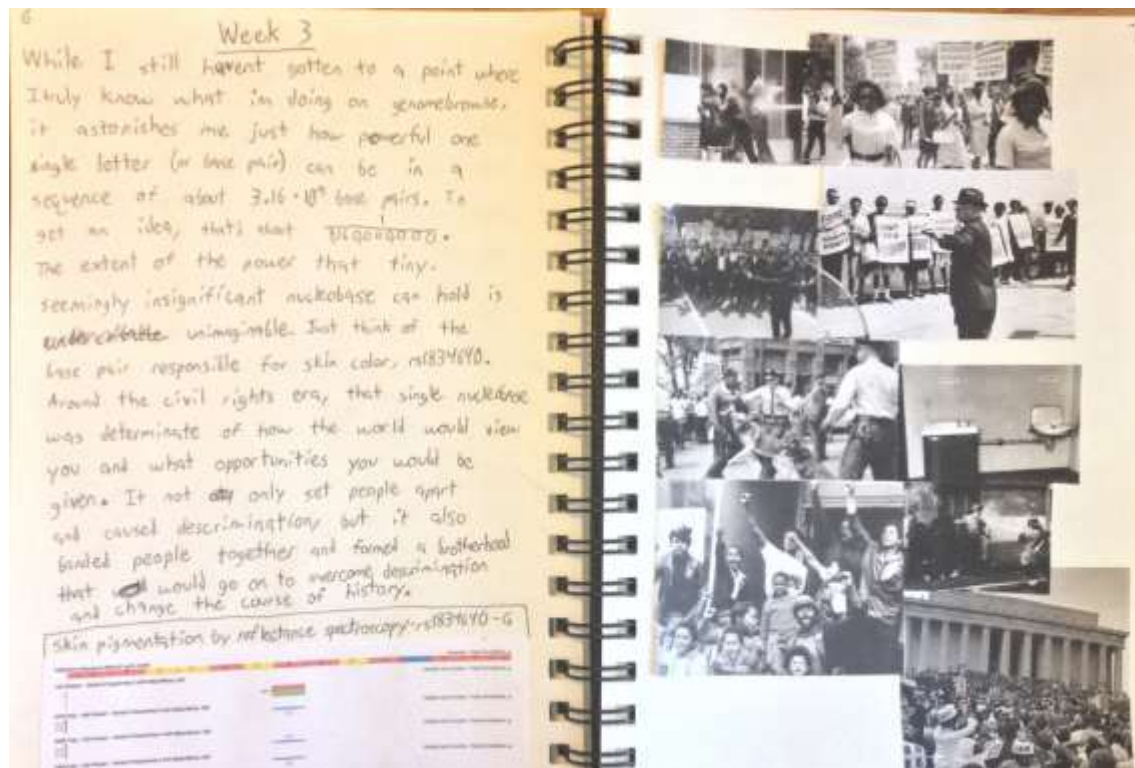 6
Week 3
While I still havent gotten to a point where
I truly know what im doing on genomebrowse,
it astonishes me just how powerful one
single letter (or base pair) can be in a
sequence of about 3.16 · 10⁹ base pairs. To
get an idea, thats about 1/3160000000.
The extent of the power that tiny,
seemingly insignificant nucleobase can hold is
unimaginable. Just think of the
base pair responsible for skin color, rs1834640.
Around the civil rights era, that single nucleobase
was determinate of how the world would view
you and what opportunities you would be
given. It not only set people apart
and caused descrimination, but it also
banded people together and formed a brotherhood
that would go on to overcome descrimination
and change the course of history.
skin pigmentation by reflectance spectroscopy-rs1834640-G